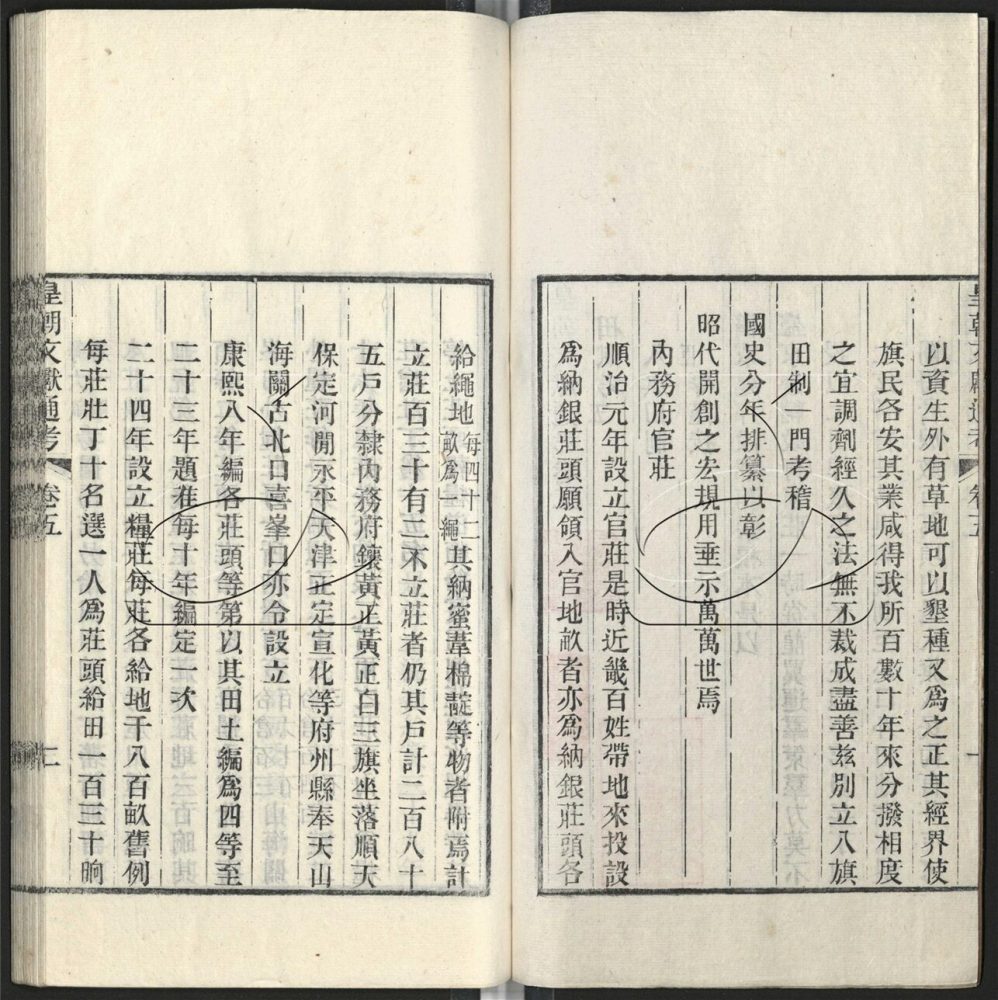 皇朝文獻通考 卷五 一
以資生外有草地可以墾種又爲之正其經界使
旗民各安其業咸得我所百數十年來分撥相度
之宜調劑經久之法無不裁成盡善茲別立八旗
田制一門考稽
國史分年排纂以彰
昭代開創之宏規用垂示萬萬世焉
內務府官莊
順治元年設立官莊是時近畿百姓帶地來投設
爲納銀莊頭願領入官地畝者亦爲納銀莊頭各
給繩地每四十二畝爲一繩其納蜜葦棉靛等物者附焉計
立莊百三十有二不立莊者仍其戶計二百八十
五戶分隸內務府鑲黃正黃正白三旗坐落順天
保定河閒永平天津正定宣化等府州縣奉天山
海關古北口喜峯口亦令設立
康熙八年編各莊頭等第以其田土編爲四等至
二十三年題准每十年編定一次
二十四年設立糧莊每莊各給地千八百畝舊例
每莊壯丁十名選一人爲莊頭給田一百三十晌
皇朝文獻通考 卷五 二